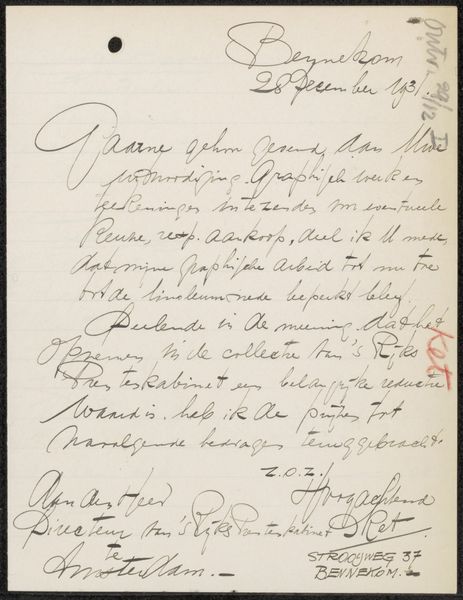 Bennekom
28 December 1931.
ontv. 29/12 31
Gaarne gehoor gevend aan Uwe
uitnoodiging graphisch werk en
teekeningen in te zenden m eventueele
keuze, resp. aankoop, deel ik U mede,
dat mijn graphische arbeid tot nu toe
tot de linoleumsnede beperkt bleef.
Deelende in de meening dat het
opnemen in de collectie van 's Rijks
Prentenkabinet een belangrijke reductie
waard is, heb ik de prijzen tot
navolgende bedragen teruggebracht.
Ket
z.o.z.
Hoogachtend
Aan den Heer
Directeur van 's Rijks Prentenkabinet
DKet.
te
Amsterdam.–
STROOIJWEG 37
BENNEKOM.–